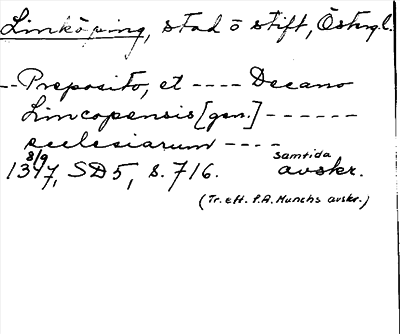 Linköping, stad o stift, Östergl.
-- Preposito, et ---- Decano
Lincopensis [gen.] ------
ecclesiarum ----
8/9 samtida
1347, SD5, s. 716. avskr.
(Tr. eft. P.A. Munchs avskr.)